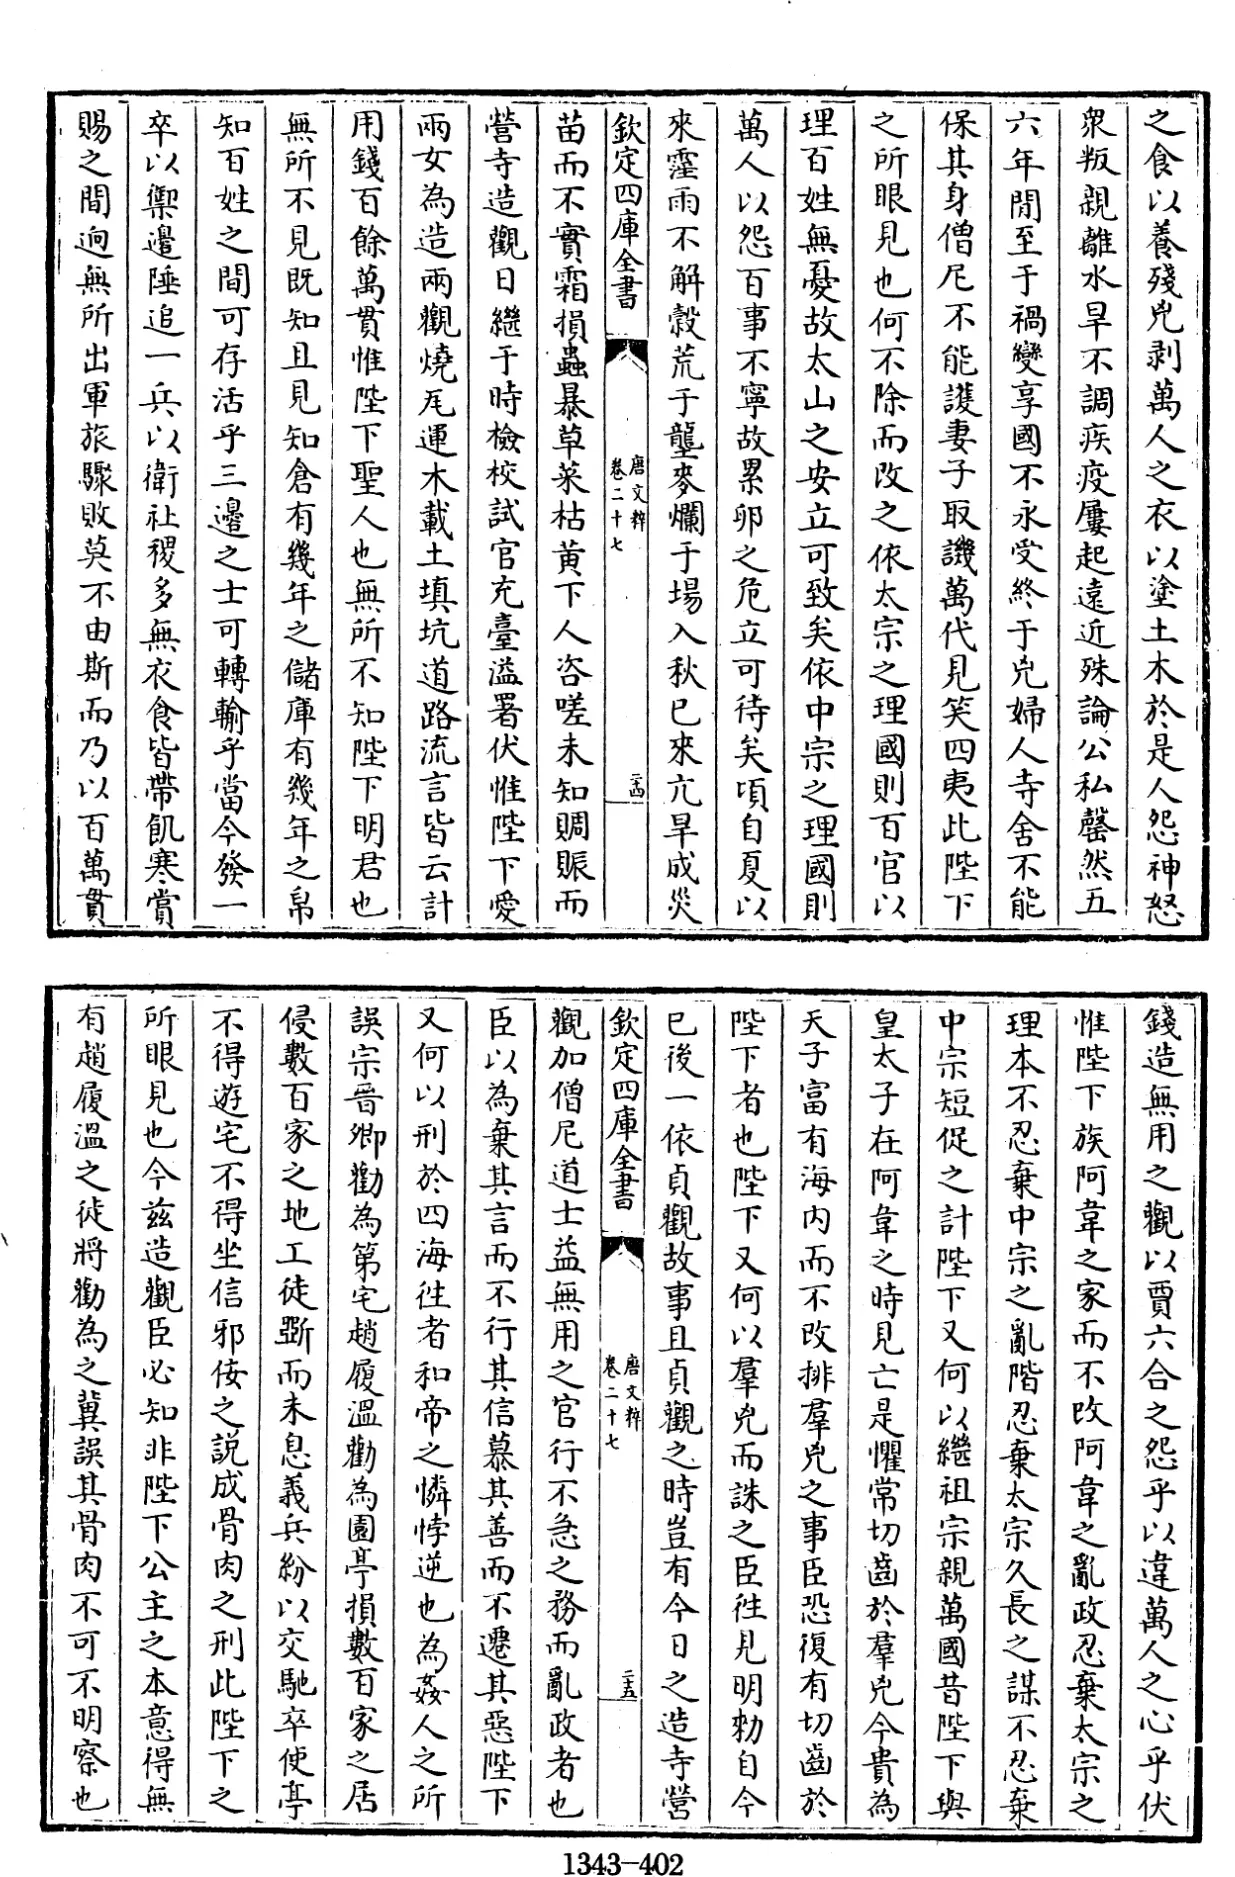 之食以養殘兇剥萬人之衣以塗土木於是人怨神怒
衆叛親離水旱不調疾疫屢起遠近殊論公私罄然五
六年間至于禍變享國不永受終于兇婦人寺舍不能
保其身僧尼不能護妻子取譏萬代見笑四夷此陛下
之所眼見也何不除而改之依太宗之理國則百官以
理百姓無憂故太山之安立可致矣依中宗之理國則
萬人以怨百事不寧故累卵之危立可待矣頃自夏以
來霪雨不解穀荒于壟麥爛于場入秋已來亢旱成災
欽定四庫全書
唐文粹
卷二十七
二十四
苗而不實霜損蟲暴草菜枯黄下人咨嗟未知賙賑而
營寺造觀日繼于時檢校試官充臺溢署伏惟陛下愛
兩女為造兩觀燒瓦運木載土填坑道路流言皆云計
用錢百餘萬貫惟陛下聖人也無所不知陛下明君也
無所不見既知且見知倉有幾年之儲庫有幾年之帛
知百姓之間可存活乎三邊之士可轉輸乎當今發一
卒以禦邊陲追一兵以衛社稷多無衣食皆帶飢寒賞
賜之間逈無所出軍旅驟敗莫不由斯而乃以百萬貫
錢造無用之觀以賈六合之怨乎以違萬人之心乎伏
惟陛下族阿韋之家而不改阿韋之亂政忍棄太宗之
理本不忍棄中宗之亂階忍棄太宗久長之謀不忍棄
中宗短促之計陛下又何以繼祖宗親萬國昔陛下與
皇太子在阿韋之時見亡是懼常切齒於羣兇今貴為
天子富有海内而不改排羣兇之事臣恐復有切齒於
陛下者也陛下又何以羣兇而誅之臣往見明勑自今
已後一依貞觀故事且貞觀之時豈有今日之造寺營
欽定四庫全書
唐文粹
卷二十七
二十五
觀加僧尼道士益無用之官行不急之務而亂政者也
臣以為棄其言而不行其信慕其善而不遷其惡陛下
又何以刑於四海往者和帝之憐悖逆也為姦人之所
誤宗晉卿勸為第宅趙履溫勸為園亭損數百家之居
侵數百家之地工徒斲而未息義兵紛以交馳卒使亭
不得遊宅不得坐信邪佞之説成骨肉之刑此陛下之
所眼見也今兹造觀臣必知非陛下公主之本意得無
有趙履溫之徒將勸為之冀誤其骨肉不可不明察也
1343-402